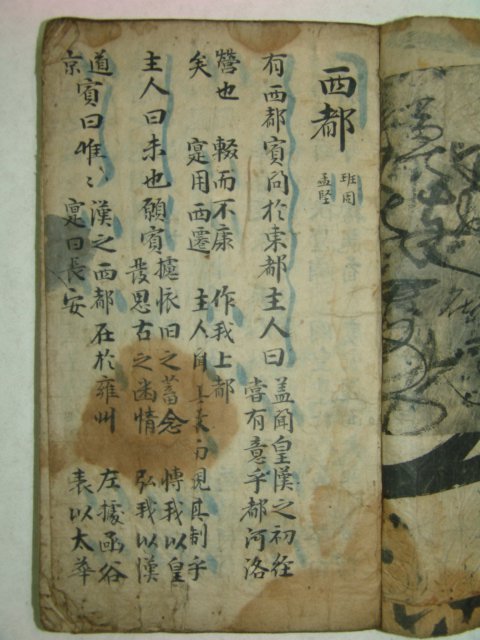 西都
班固
孟堅
有西都賓問於東都主人曰
盖聞皇漢之初経
嘗有意乎都河洛
營也 輟而不康 作我上都
矣 寔用西遷 主人見其制乎
主人曰未也願賓攄怀旧之蓄念 博我以皇
發思古之幽情 弘我以漢
道賓曰唯〻 漢之西都在於雍州 左據函谷
京 寔曰長安 表以太華